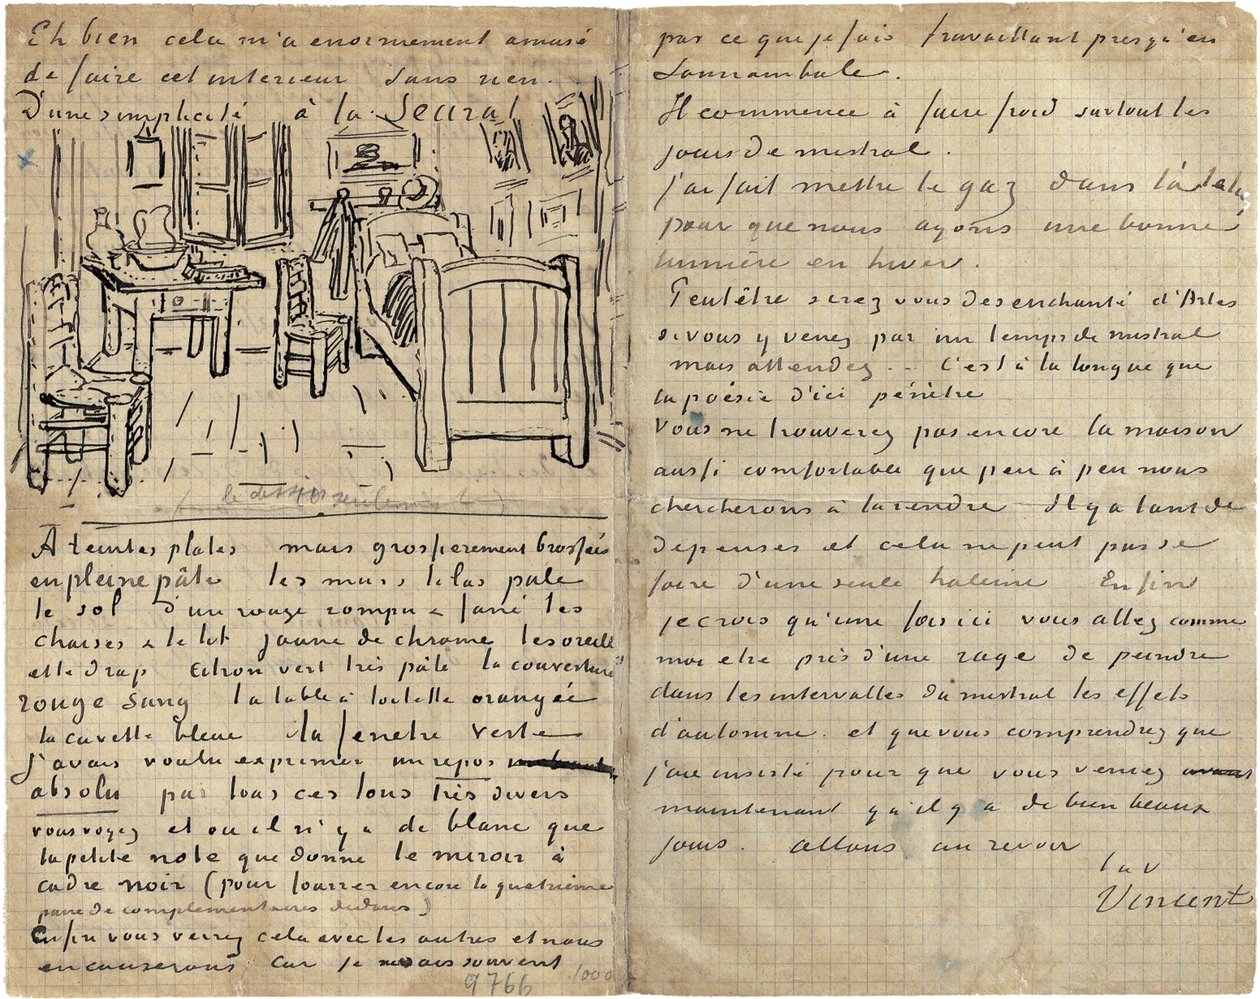 Eh bien cela m'a enormement amusé
de faire cet interieur sans rien.
D'une simplicité à la Seurat
(le dessin seulement)
A teintes plates mais grossierement brossées
en pleine pâte les murs lilas pale
le sol d'un rouge rompu & fané les
chaises & le lit jaune de chrome les oreillers
et le drap citron vert très pâle la couverture
rouge sang la table à toilette orangée
la cuvette bleue la fenetre verte
J'avais voulu exprimer un repos
absolu par tous ces tons très divers
vous voyez et où il n'y a de blanc que
la petite note que donne le miroir à
cadre noir (pour fourrer encore la quatrième
paire de complementaires dedans)
Enfin vous verrez cela avec les autres et nous
en causerons car je ne sais souvent
9766 1000
par ce que je fais travaillant presqu'en
somnambule.
Il commence à faire froid surtout les
jours de mistral.
J'ai fait mettre le gaz dans l'atelier
pour que nous ayons une bonne
lumière en hiver.
Peutêtre serez vous desenchanté d'Arles
si vous y venez par un temps de mistral
mais attendez... C'est à la longue que
la poésie d'ici pénètre
Vous ne trouverez pas encore la maison
aussi comfortable que peu à peu nous
chercherons à la rendre Il y a tant de
depenses et cela ne peut pas se
faire d'une seule haleine Enfin
je crois qu'une fois ici vous allez comme
moi etre pris d'une rage de peindre
dans les intervalles du mistral les effets
d'automne. et que vous comprendrez que
j'aie insisté pour que vous veniez
maintenant qu'il y a de bien beaux
jours. allons au revoir
t. à v
Vincent